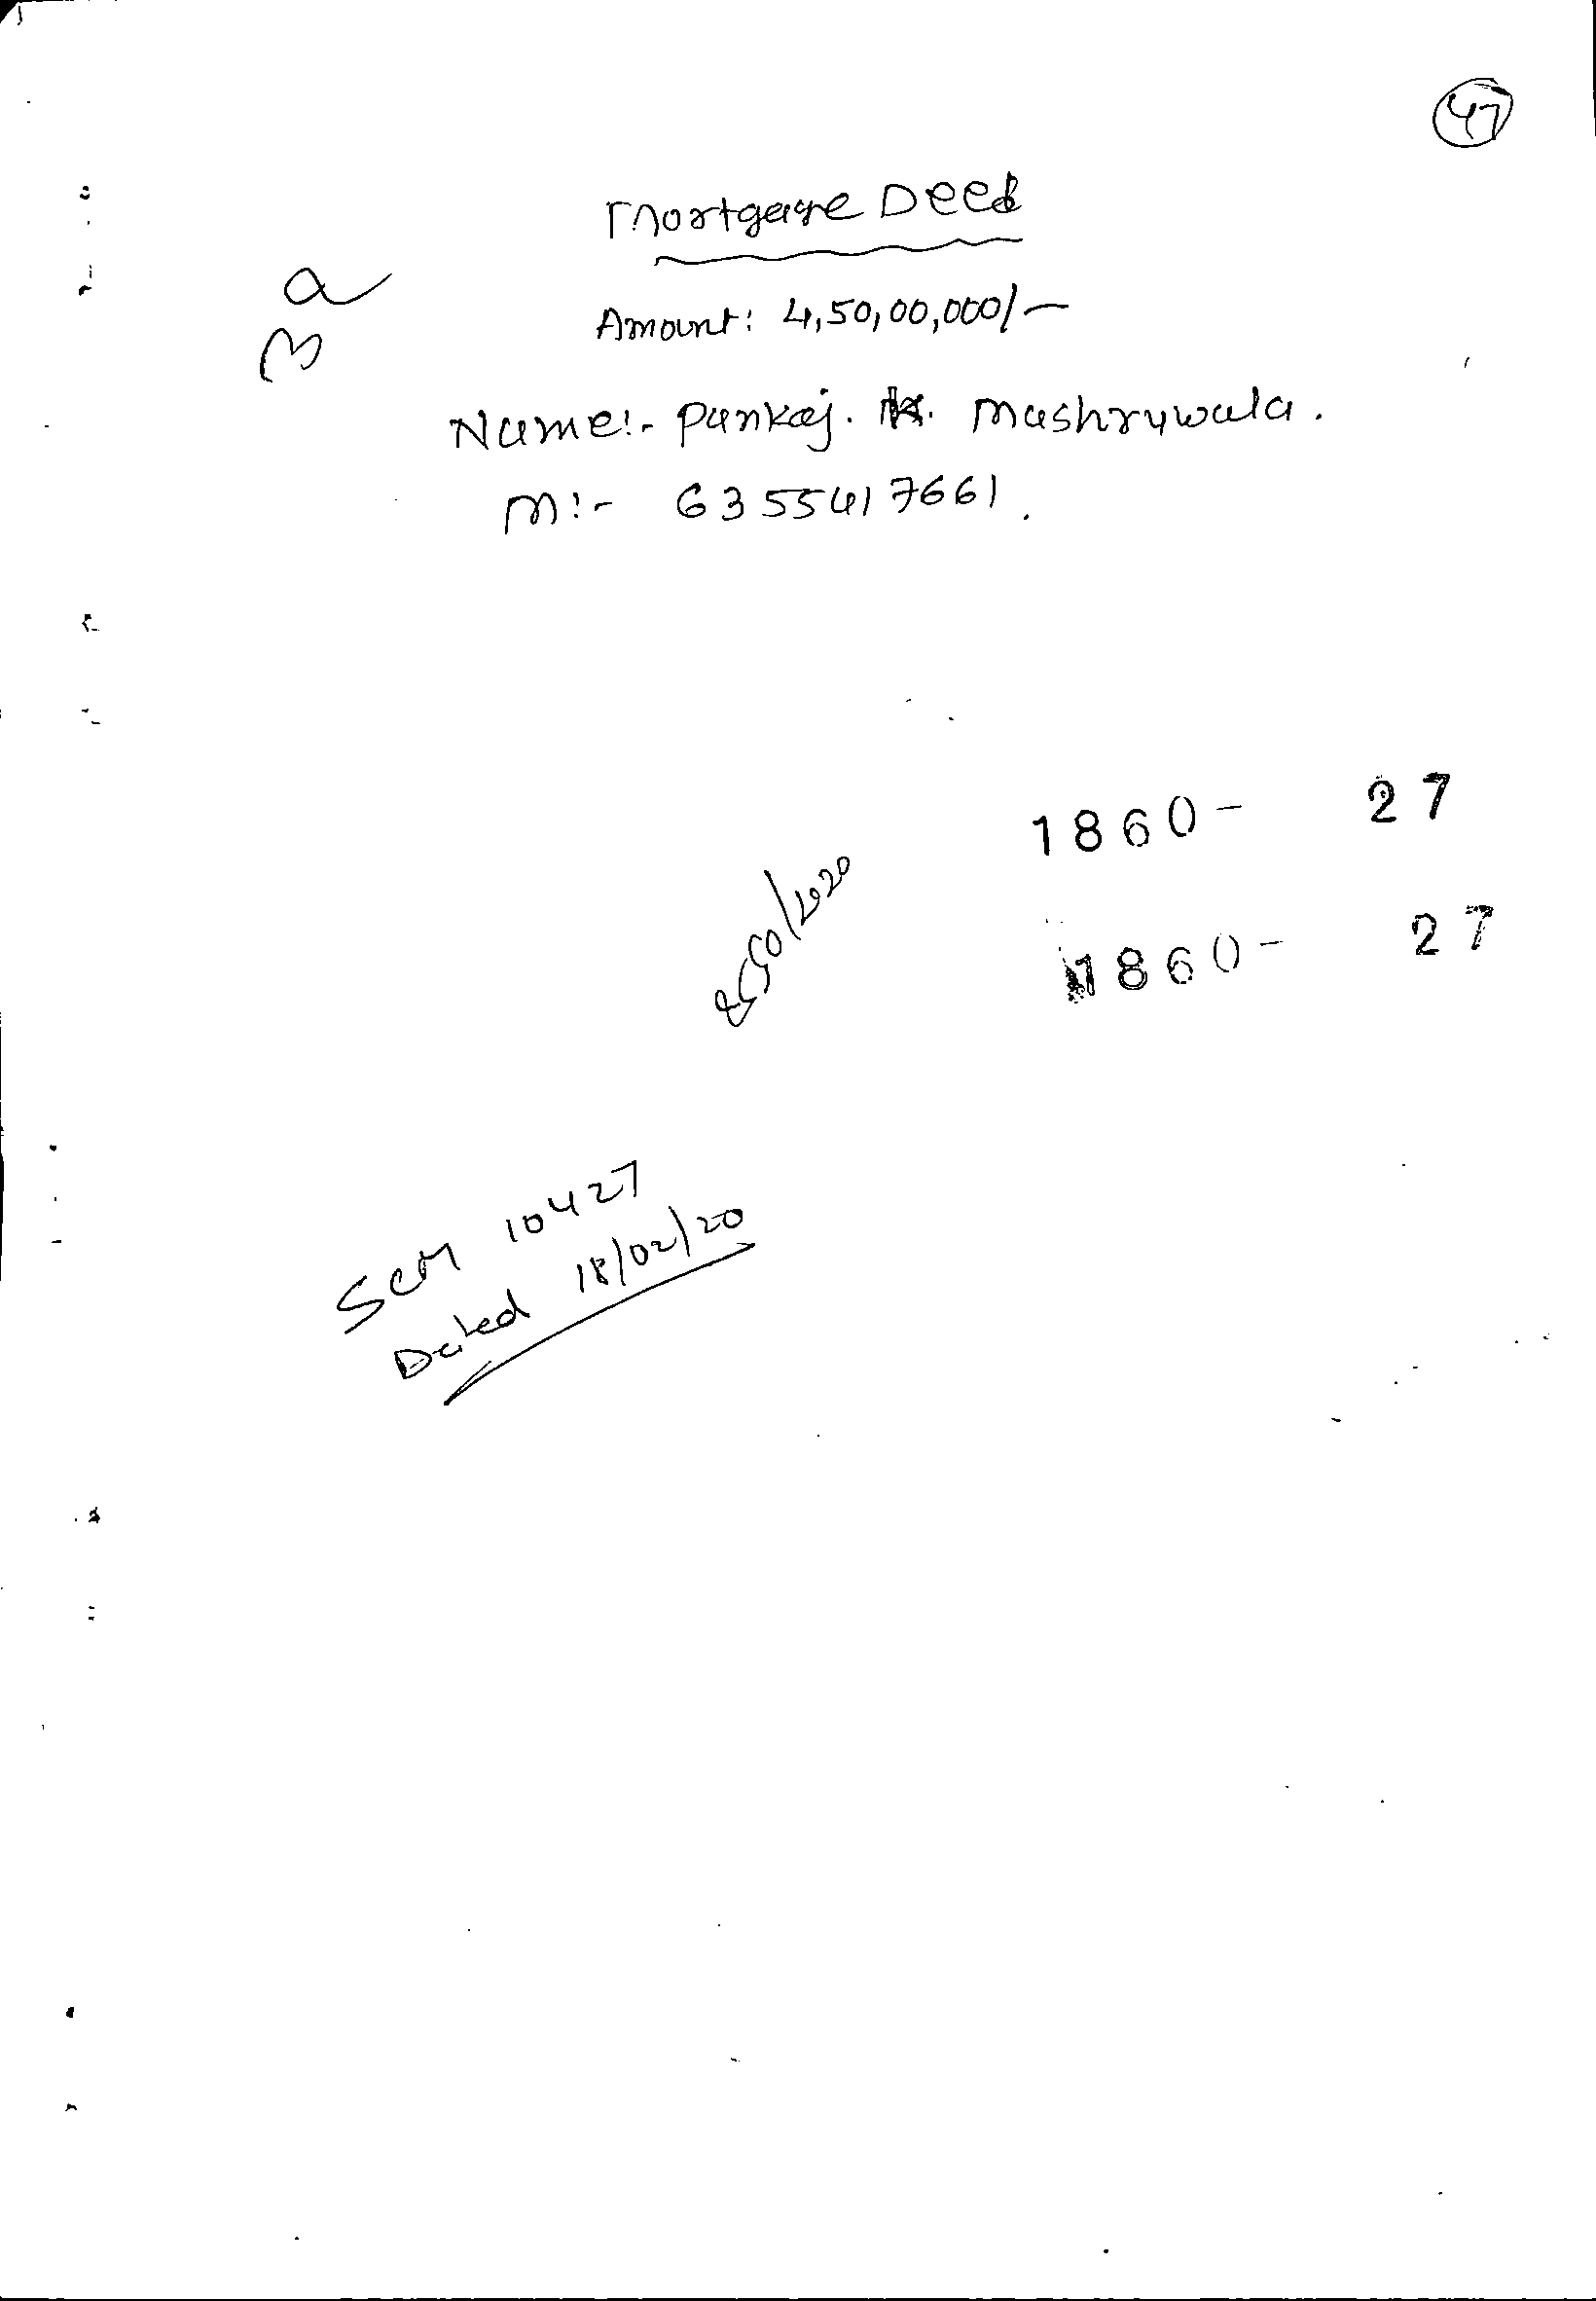 47
Mortgage Deed
Amount: 4,50,00,000/-
Name:- Pankaj. K. Mashruwala.
M:- 6355417661.
1860- 27
1860- 27
/2020
SCM 10427
Dated 18/02/20